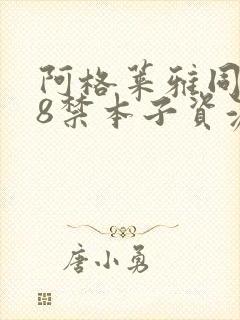 阿格莱雅同
8禁本子資
唐小勇